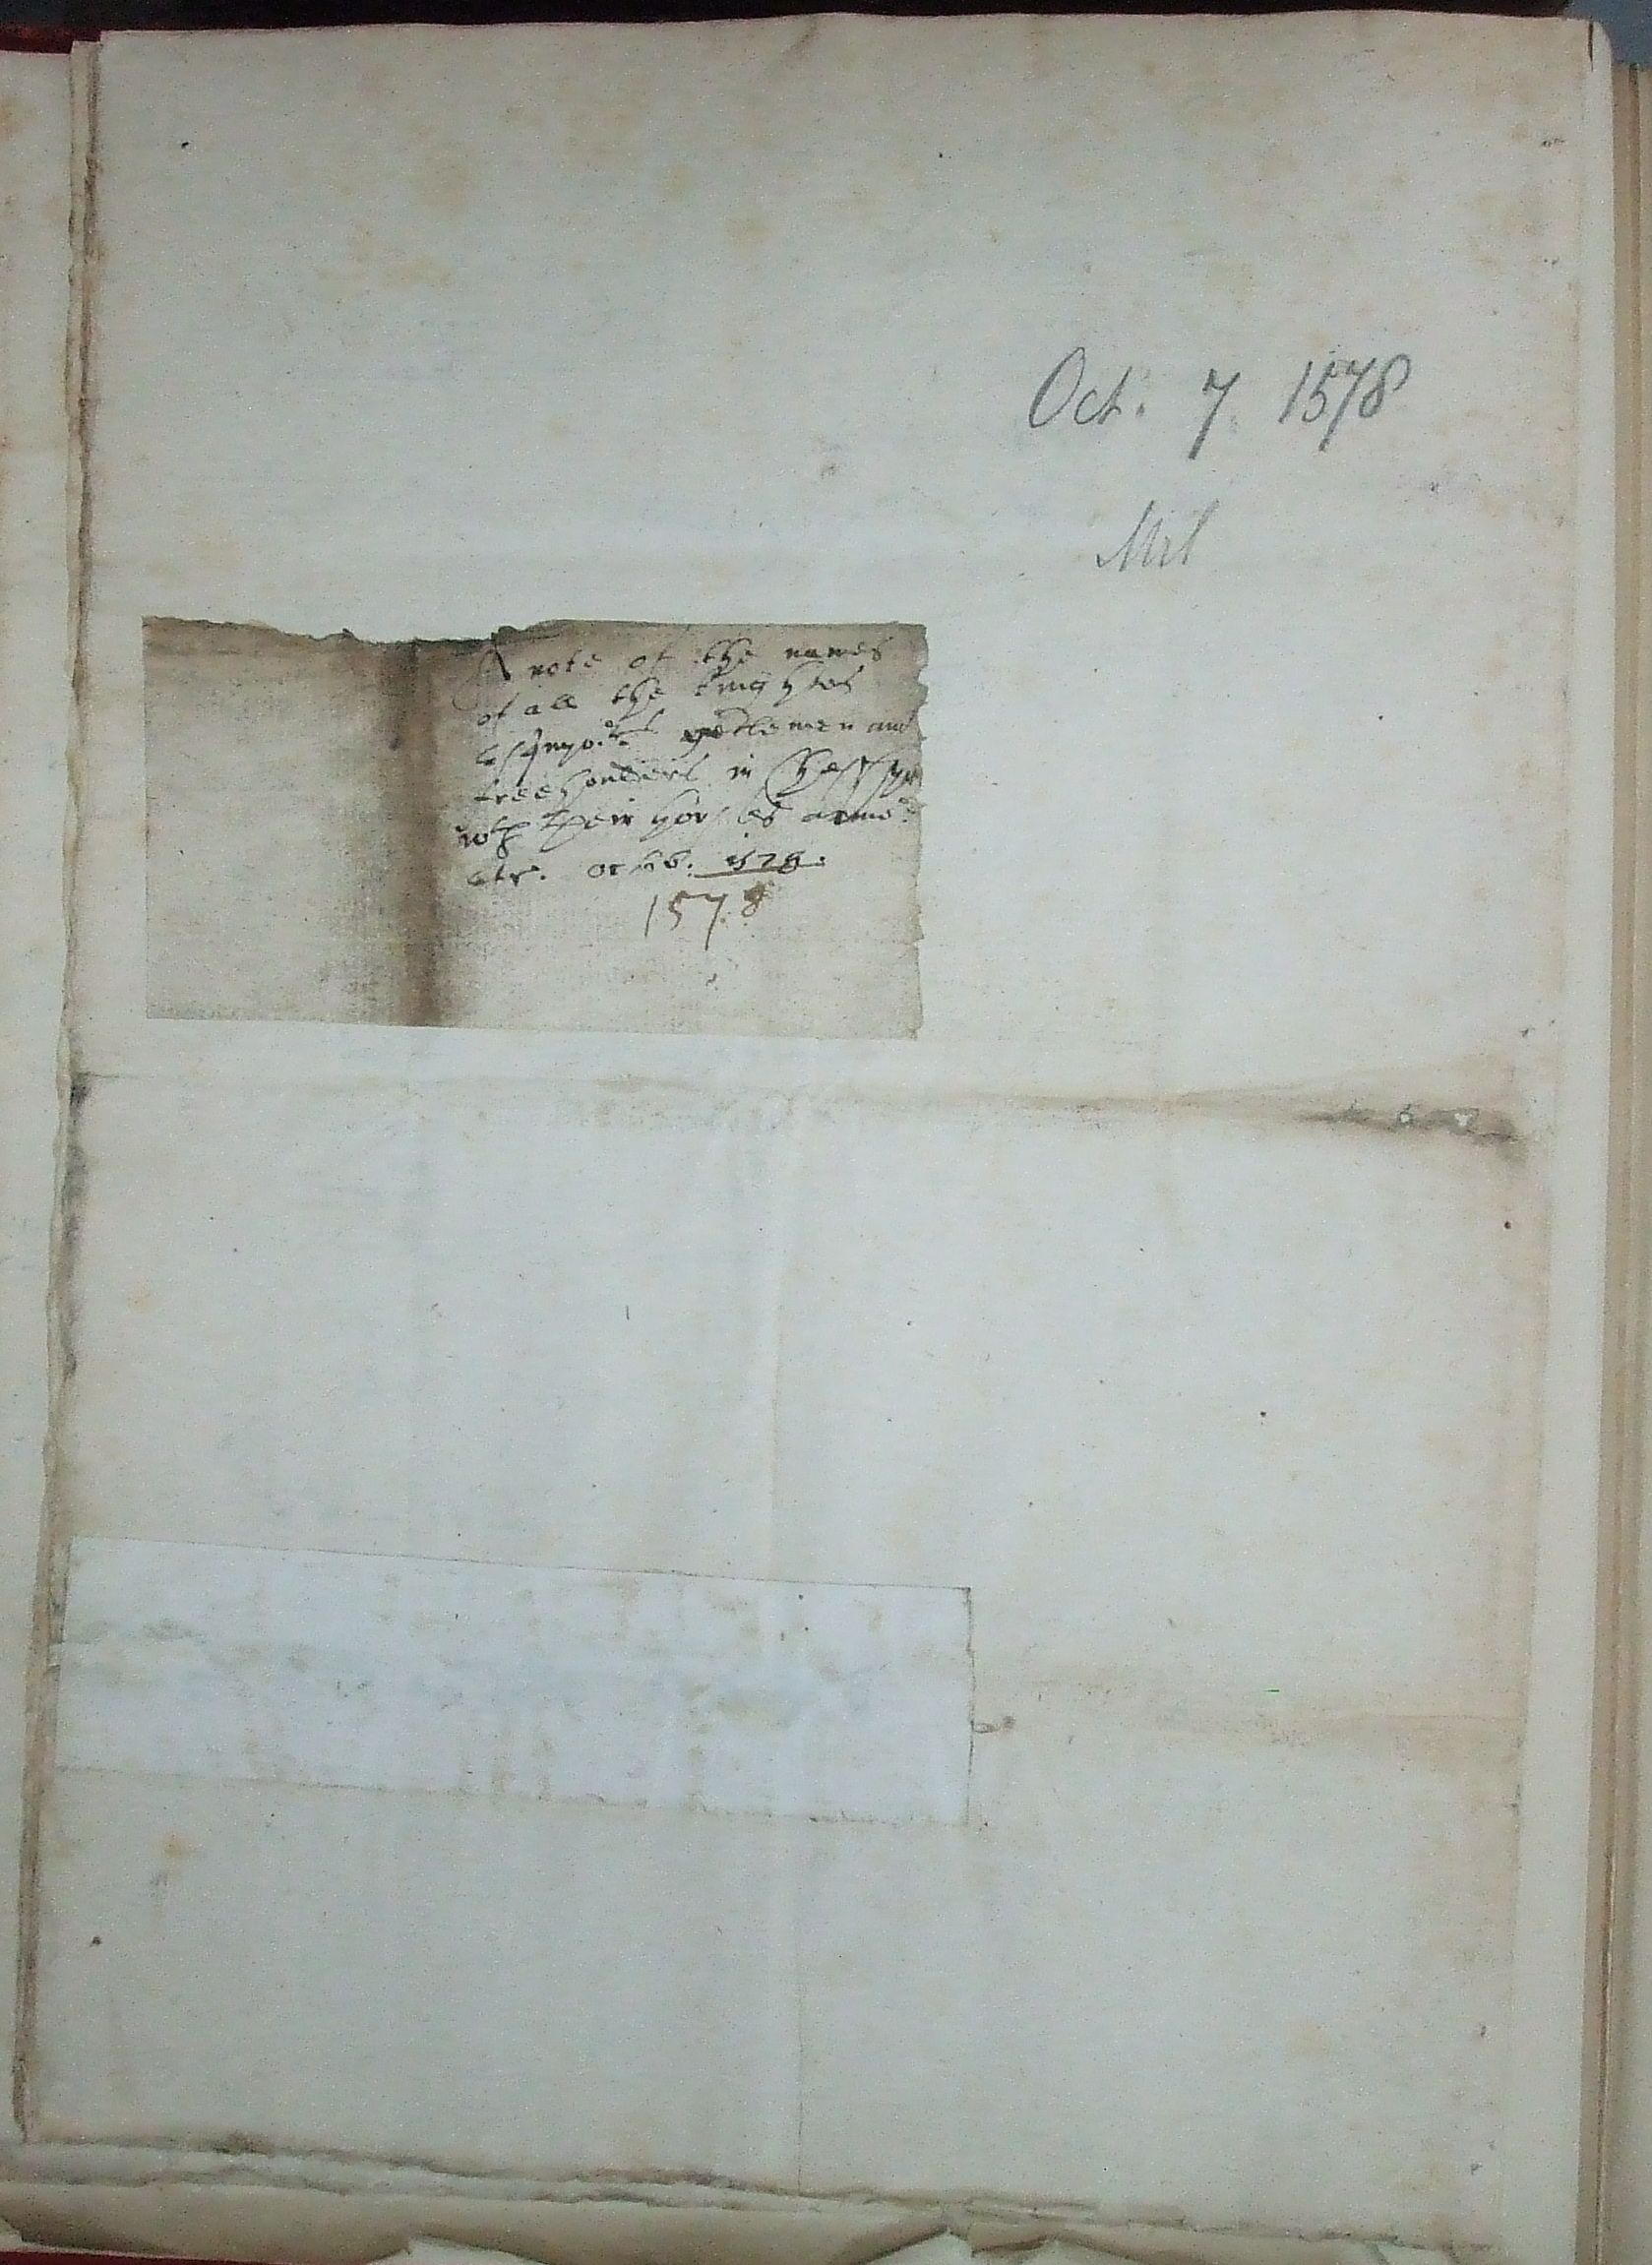 Oct. 7 1578
A note of the names
of all the knightes
gentlemen and
freehoulders in Chesshyr
wth their horses armor
etc. octob: 1578.
1578